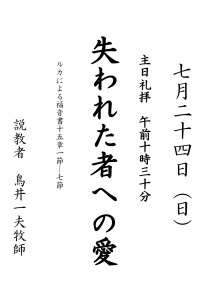 七月二十四日（日）
主日礼拝　午前十時三十分
失われた者への愛
ルカによる福音書十五章一節―七節
説教者　鳥井一夫牧師